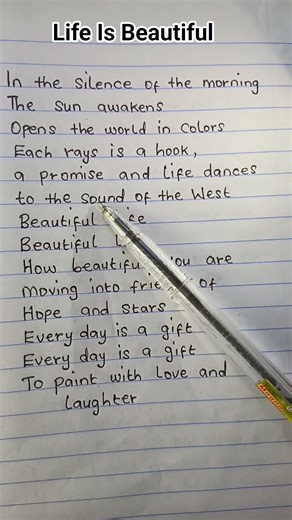 Life Is Beautiful
In the silence of the morning
The sun awakens
Opens the world in colors
Each rays is a hook,
a promise and life dances
to the sound of the West
Beautiful
Beautiful
How beautiful you are
moving into of
Hope and stars
Every day is a gift
Every day is a gift
To paint with Love and
Laughter